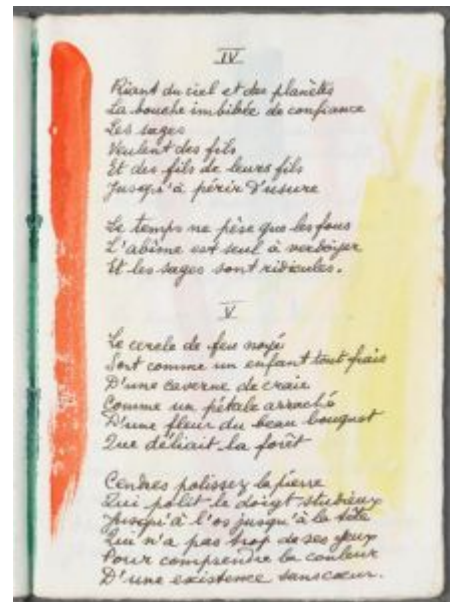 IV
Riant du ciel et des planètes
La bouche imbibée de confiance
Les sages
Veulent des fils
Et des fils de leurs fils
Jusqu'à périr d'usure
Le temps ne pèse que les fous
L'abîme est seul à verdoyer
Et les sages sont ridicules.
V
Le cercle de feu noyé
Sort comme un enfant tout frais
D'une caverne de craie
Comme un pétale arraché
D'une fleur du beau bouquet
Que déliait la forêt
Cendres polissez la pierre
Qui polit le doigt studieux
Jusqu'à l'os jusqu'à la tête
Qui n'a pas trop de ses yeux
Pour comprendre la couleur
D'une existence sans cœur.